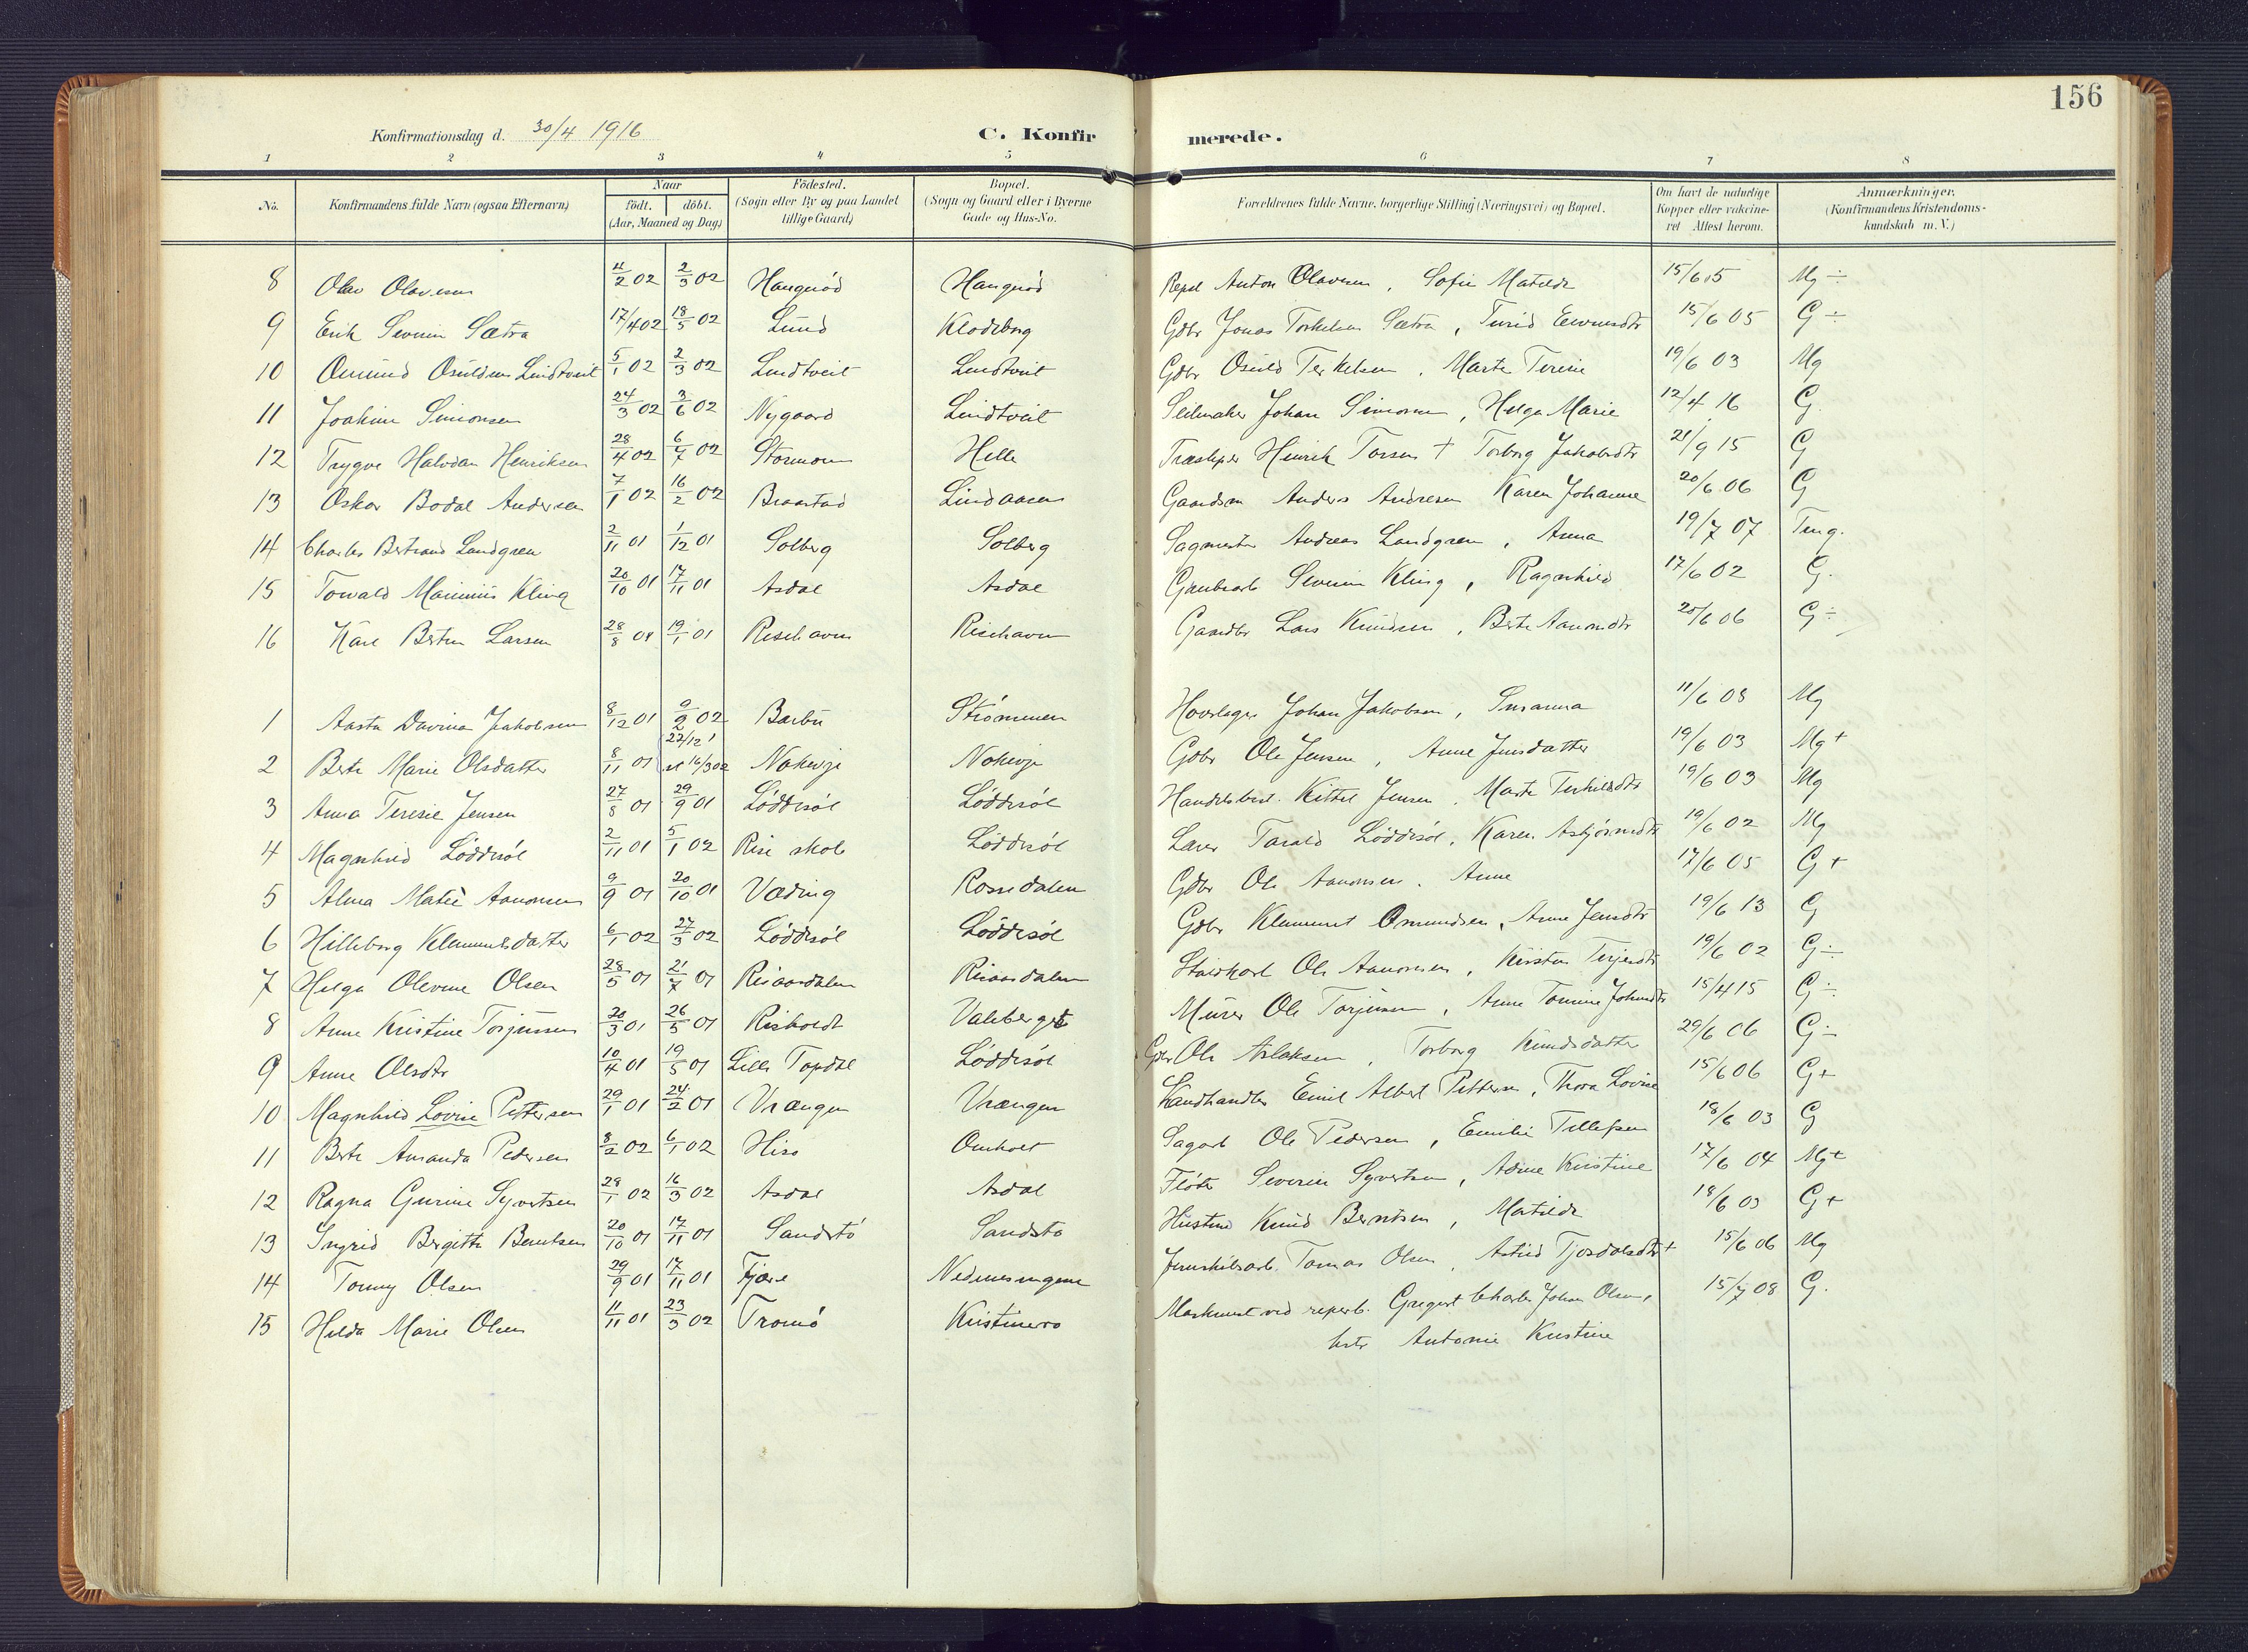 156
Konfirmationsdag d. 30/4 1916
C. Konfirmerede.
1 2 3 4 5 6 7 8
No. Konfirmandens fulde Navn (ogsaa Efternavn) Naar født. døbt. (Aar, Maaned og Dag) Fødested. (Sogn eller By og paa Landet tillige Gaard) Bopæl. (Sogn og Gaard eller i Byerne Gade og Hus-No. Forældrenes fulde Navne, borgerlige Stilling (Næringsvei) og Bopæl. Om havt de naturlige Kopper eller vakcineret Attest herom. Anmærkninger. (Konfirmandens Kristendomskundskab m. V.)
8 Olav Olavesen 4/2 02 2/3 02 Haugrød Haugrød Anton Olavesen, Sofie Matilde 15/6 15 Mg ÷
9 Erik Severin Sætra 17/4 02 18/5 02 Lund Klodeborg Gdbr Jonas Torkelsen Sætra, Turid 15/6 05 G ÷
10 Omund Osuldsen Lindtveit 5/1 02 2/3 02 Lindtveit Lindtveit Gdbr Osuld Terkelsen, Marte Teresie 19/6 03 Mg
11 Joakim Simonsen 24/3 02 3/6 02 Nygaard Lindtveit Seilmaker Johan Simonsen, Helga Marie 12/4 16 G.
12 Trygve Halvdan Henriksen 28/4 02 6/7 02 Helle Henrik Torsen + Torborg Jakobsdtr 21/9 15 G
13 Oskar Bodal Andersen 7/1 02 16/2 02 Braastad Lindaasen Gaardsm Anders Andresen Karen Johanne 20/6 06 G
14 Charles Bertrand Landgren 2/11 01 1/12 01 Solberg Solberg Sagmester Andreas Landgren, Anna 19/7 07 Tmg.
15 Torvald Marinius Kling 20/10 01 17/11 01 Asdal Asdal Severin Kling, Ragnhild 17/6 02 G.
16 Kåre Bertin Larsen 28/8 01 19/1 01 Risehaven Risehaven Gaardbr Lars Knudsen, Berte Aanonsdtr 20/6 06 G ÷
1 Aasta Davina Jakobsen 8/12 01 9/2 02 Barbu Strømmen Hovslager Johan Jakobsen, Susanna 11/6 08 Mg
2 Berte Marie Olsdatter 8/11 01 22/12 1 st 16/3 02 Nakevje Nakevje Gdbr Ole Jensen, Anne Jensdatter 19/6 03 Mg +
3 Anna Teresie Jensen 27/8 01 29/9 01 Løddesøl Løddesøl Handelsbest. Kittel Jensen, Marte Terkelsdtr 19/6 03 Mg
4 Magnhild Løddesøl 2/11 01 5/1 02 Rise skole Løddesøl Lærer Tarald Løddesøl, Karen Asbjørnsdtr 19/6 02 Mg
5 Alma Matie Aanonsen 9/9 01 20/10 01 Væding Rossedalen Gdbr Ole Aanonsen. Anne 17/6 05 G +
6 Hilleborg Klemmetsdatter 6/1 02 27/3 02 Løddesøl Løddesøl Gdbr Klemmet Omundsen, Anne Jensdtr 19/6 13 G
7 Helga Olevine Olsen 28/5 01 21/7 01 Risaasdalen Risaasdalen Ole Aanonsen, Kirsten Terjesdtr 19/6 02 G ÷
8 Anne Kristine Torjussen 20/3 01 26/5 01 Risholdt Valeberget Murer Ole Torjusen, Anne Tomine 15/4 15 G ÷
9 Anne Olsdtr 10/4 01 19/5 01 Lille Topdal Løddesøl Gdbr Ole Aslaksen, Torborg Knudsdatter 29/6 06 G ÷
10 Magnhild Lovise Pettersen 29/1 01 24/2 01 Vrængen Vrængen Landhandler Emil Albert Pettersen, Thora Lovise 15/6 06 G +
11 Berte Amanda Pedersen 8/2 02 6/1 02 Hisø Omholt Sagarb Ole Pedersen, Emilie Tellefsen 18/6 03 G
12 Ragna Gurine Syvertsen 29/1 02 16/3 02 Asdal Asdal Fløter Severin Syvertsen, Anne Kristine 17/6 04 Mg +
13 Ingrid Bergitte Berntsen 20/10 01 17/11 01 Sandstø Sandstø Knud Berntsen, Matilde 18/6 03 G +
14 Tommy Olsen 29/9 01 17/11 01 Fjære Tomas Olsen, Astrid 15/6 06 Mg
15 Hilda Marie Olsen 11/11 01 23/3 02 Tromø Kristinero Maskinist ved reperb. Gregert Charles Johan Olsen, 15/7 08 G.
Antonie Kristine